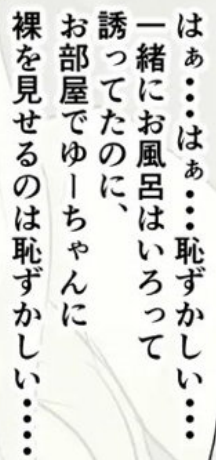 はぁ…はぁ…恥ずかしい…
一緒にお風呂はいろって
誘ってたのに、
お部屋でゆーちゃんに
裸を見せるのは恥ずかしい……